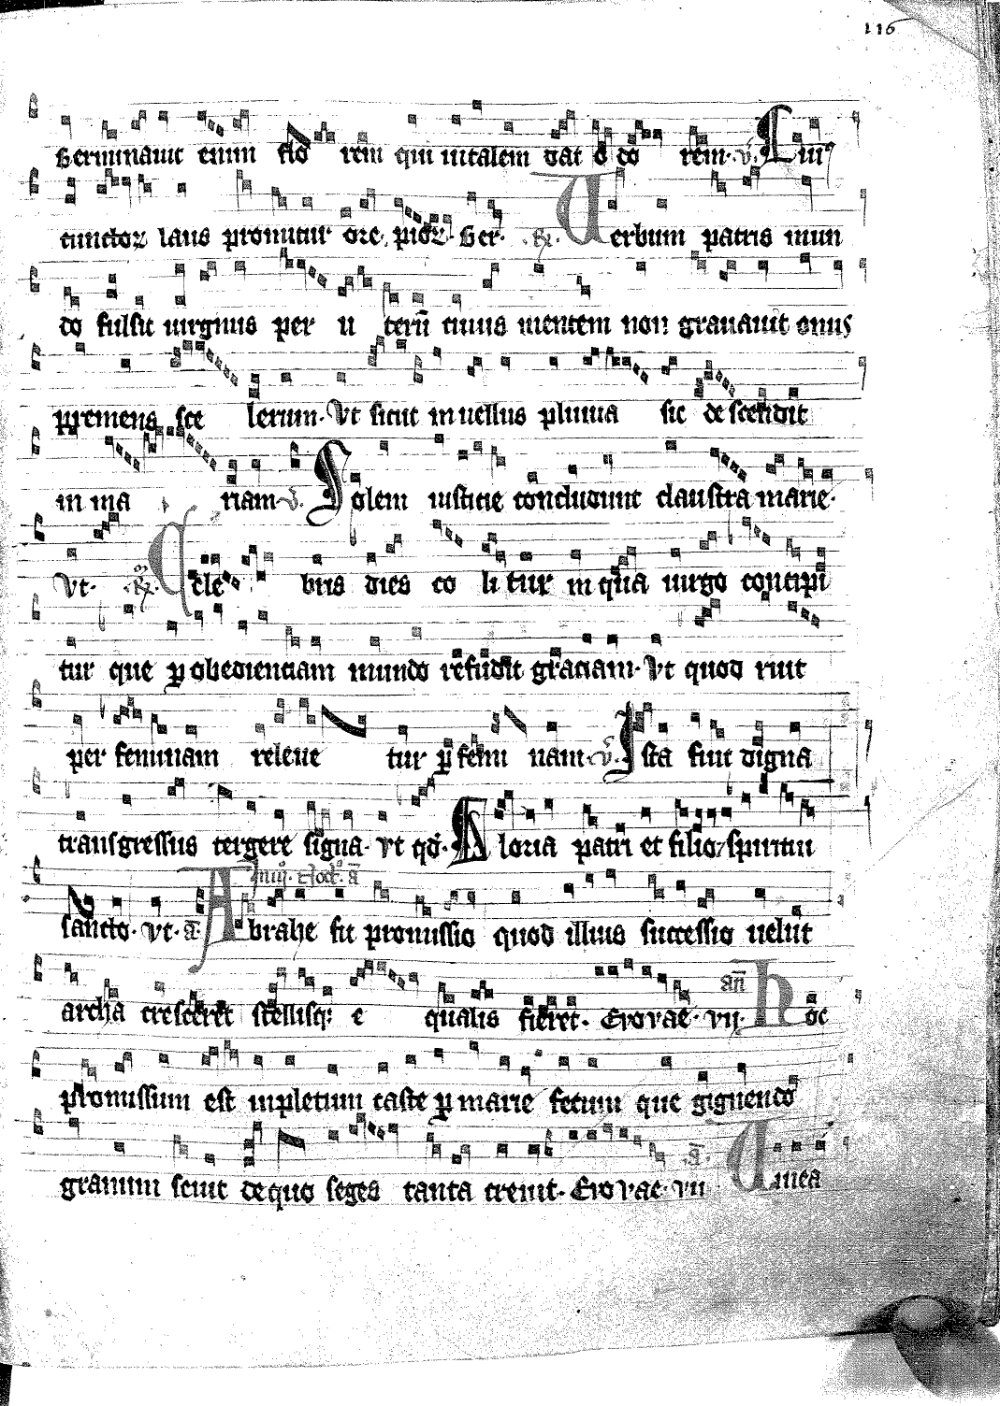 116
Germinavit enim flo rem qui vitalem dat o do rem. v. Cui9
cunctoꝝ laus promitur ore pioꝝ. Ger. R. Verbum patris mun
do fulsit virginis per u terū cuius mentem non gravavit onus
premens sce lerum. Vt sicut in vellus pluvia sic de scendit
in ma riam. v. Solem iusticie concludunt claustra marie.
Vt. R. Cele bris dies co li tur in qua virgo concipi
tur que ꝑ obedienciam mundo refudit graciam. Vt quod ruit
per feminam releve tur ꝑ femi nam. v. Ista fuit digna
transgressus tergere signa. vt qd. Gloria patri et filio spiritui
In iij. Noct. a
sancto. vt. a. Abrahe fit promissio quod illius successio velut
archa cresceret stellisqꝫ e qualis fieret. Evovae. vij. an Hoc
promissum est inpletum caste ꝑ marie fetum que gignendo
granum scivit de quo seges tanta crevit. Evovae. vii a. Vinea